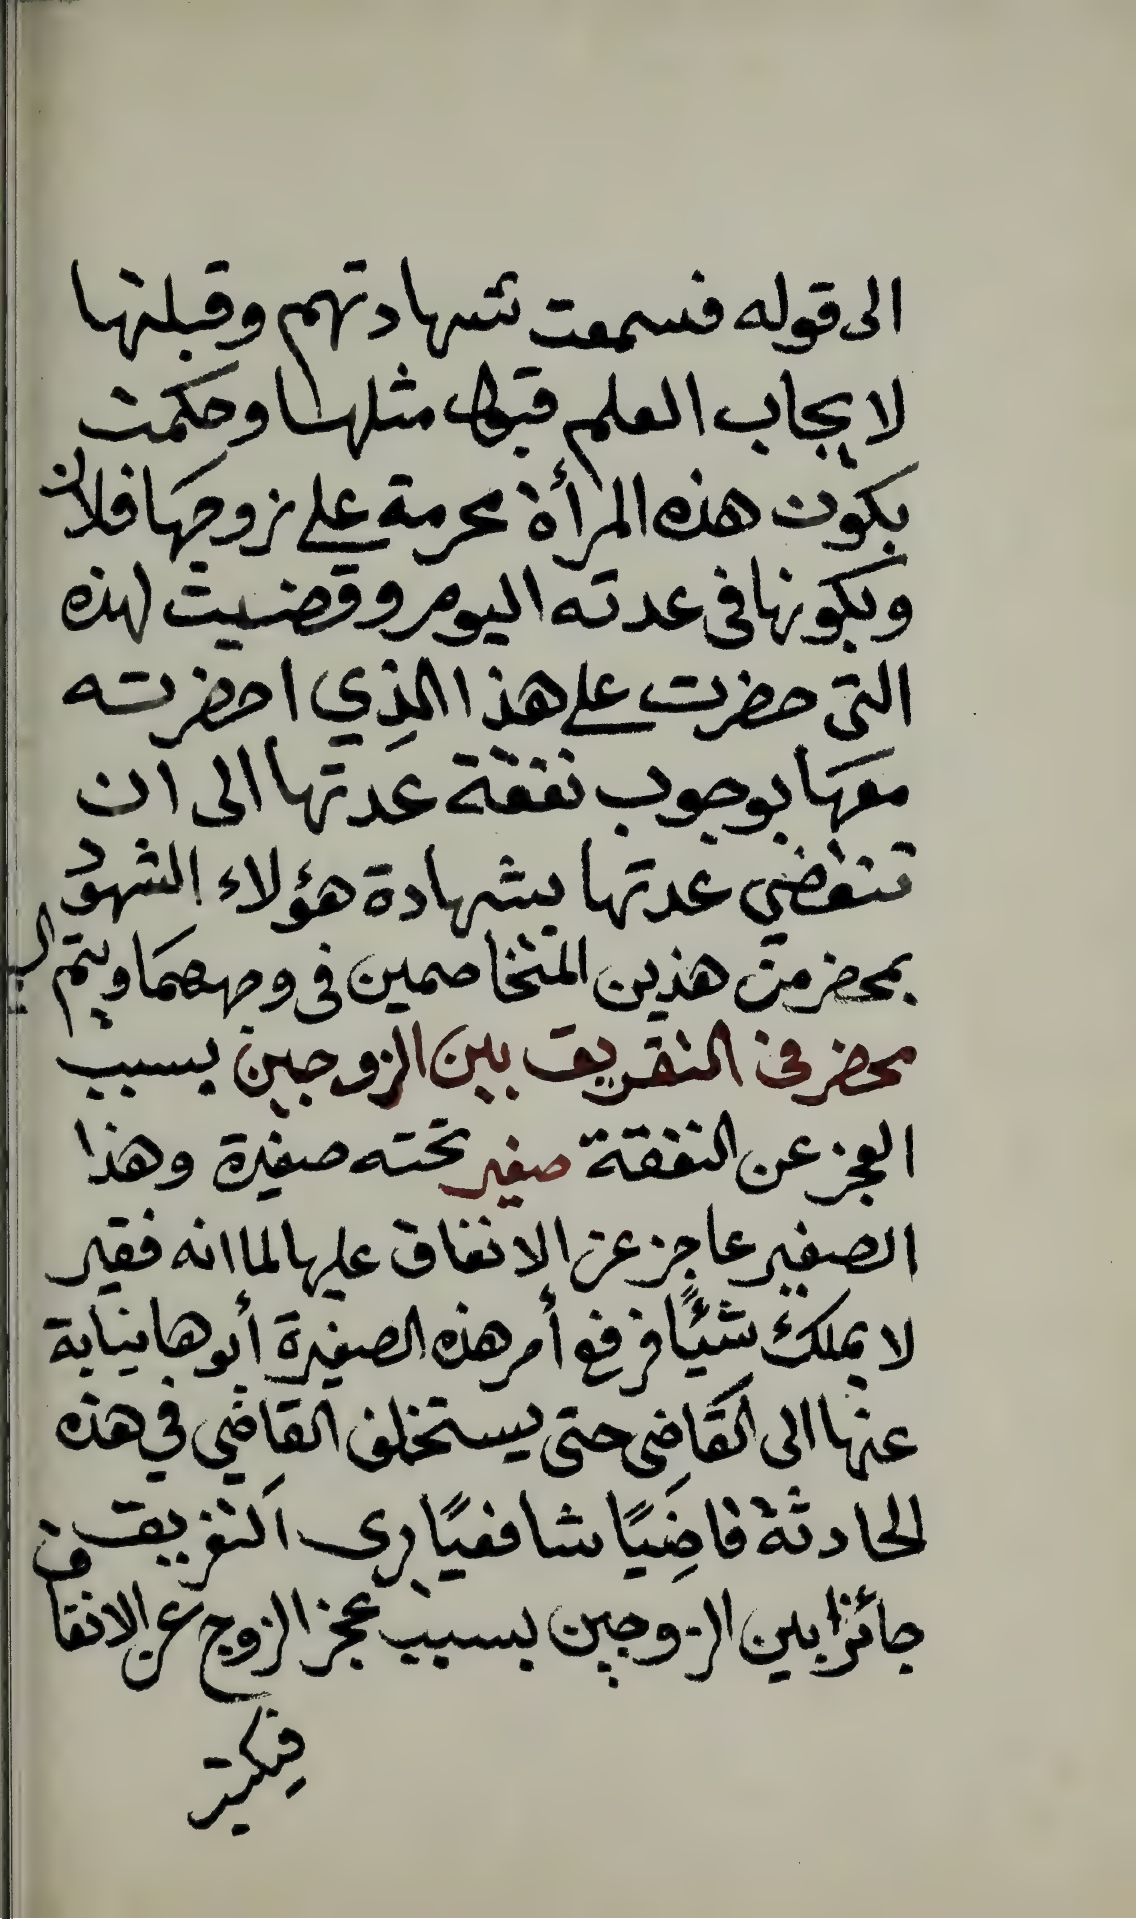 الى قوله فسمعت شهادتهم وقبلتها
لايجاب العلم قبول مثلها وحكمت
بكون هذه المرأة محرمة على زوجها فلان
وبكونها فى عدته اليوم وقضيت لهذه
التى حضرت على هذا الذي احضرته
معها بوجوب نفقة عدتها الى ان
تنقضي عدتها بشهادة هؤلاء الشهود
بمحضر من هذين المتخاصمين فى وجههما ويتم
محضر فى التفريق بين الزوجين بسبب
العجز عن النفقة صغير تحته صغيرة وهذا
الصغير عاجز عن الانفاق عليها لما انه فقير
لا يملك شيئًا فرفع أمر هذه الصغيرة أبوها بنيابة
عنها الى القاضى حتى يستخلف القاضي في هذه
الحادثة قاضِيًا شافعيًا يرى التفريق
جائزا بين الزوجين بسبب عجز الزوج عن الانفاق
فيكتب